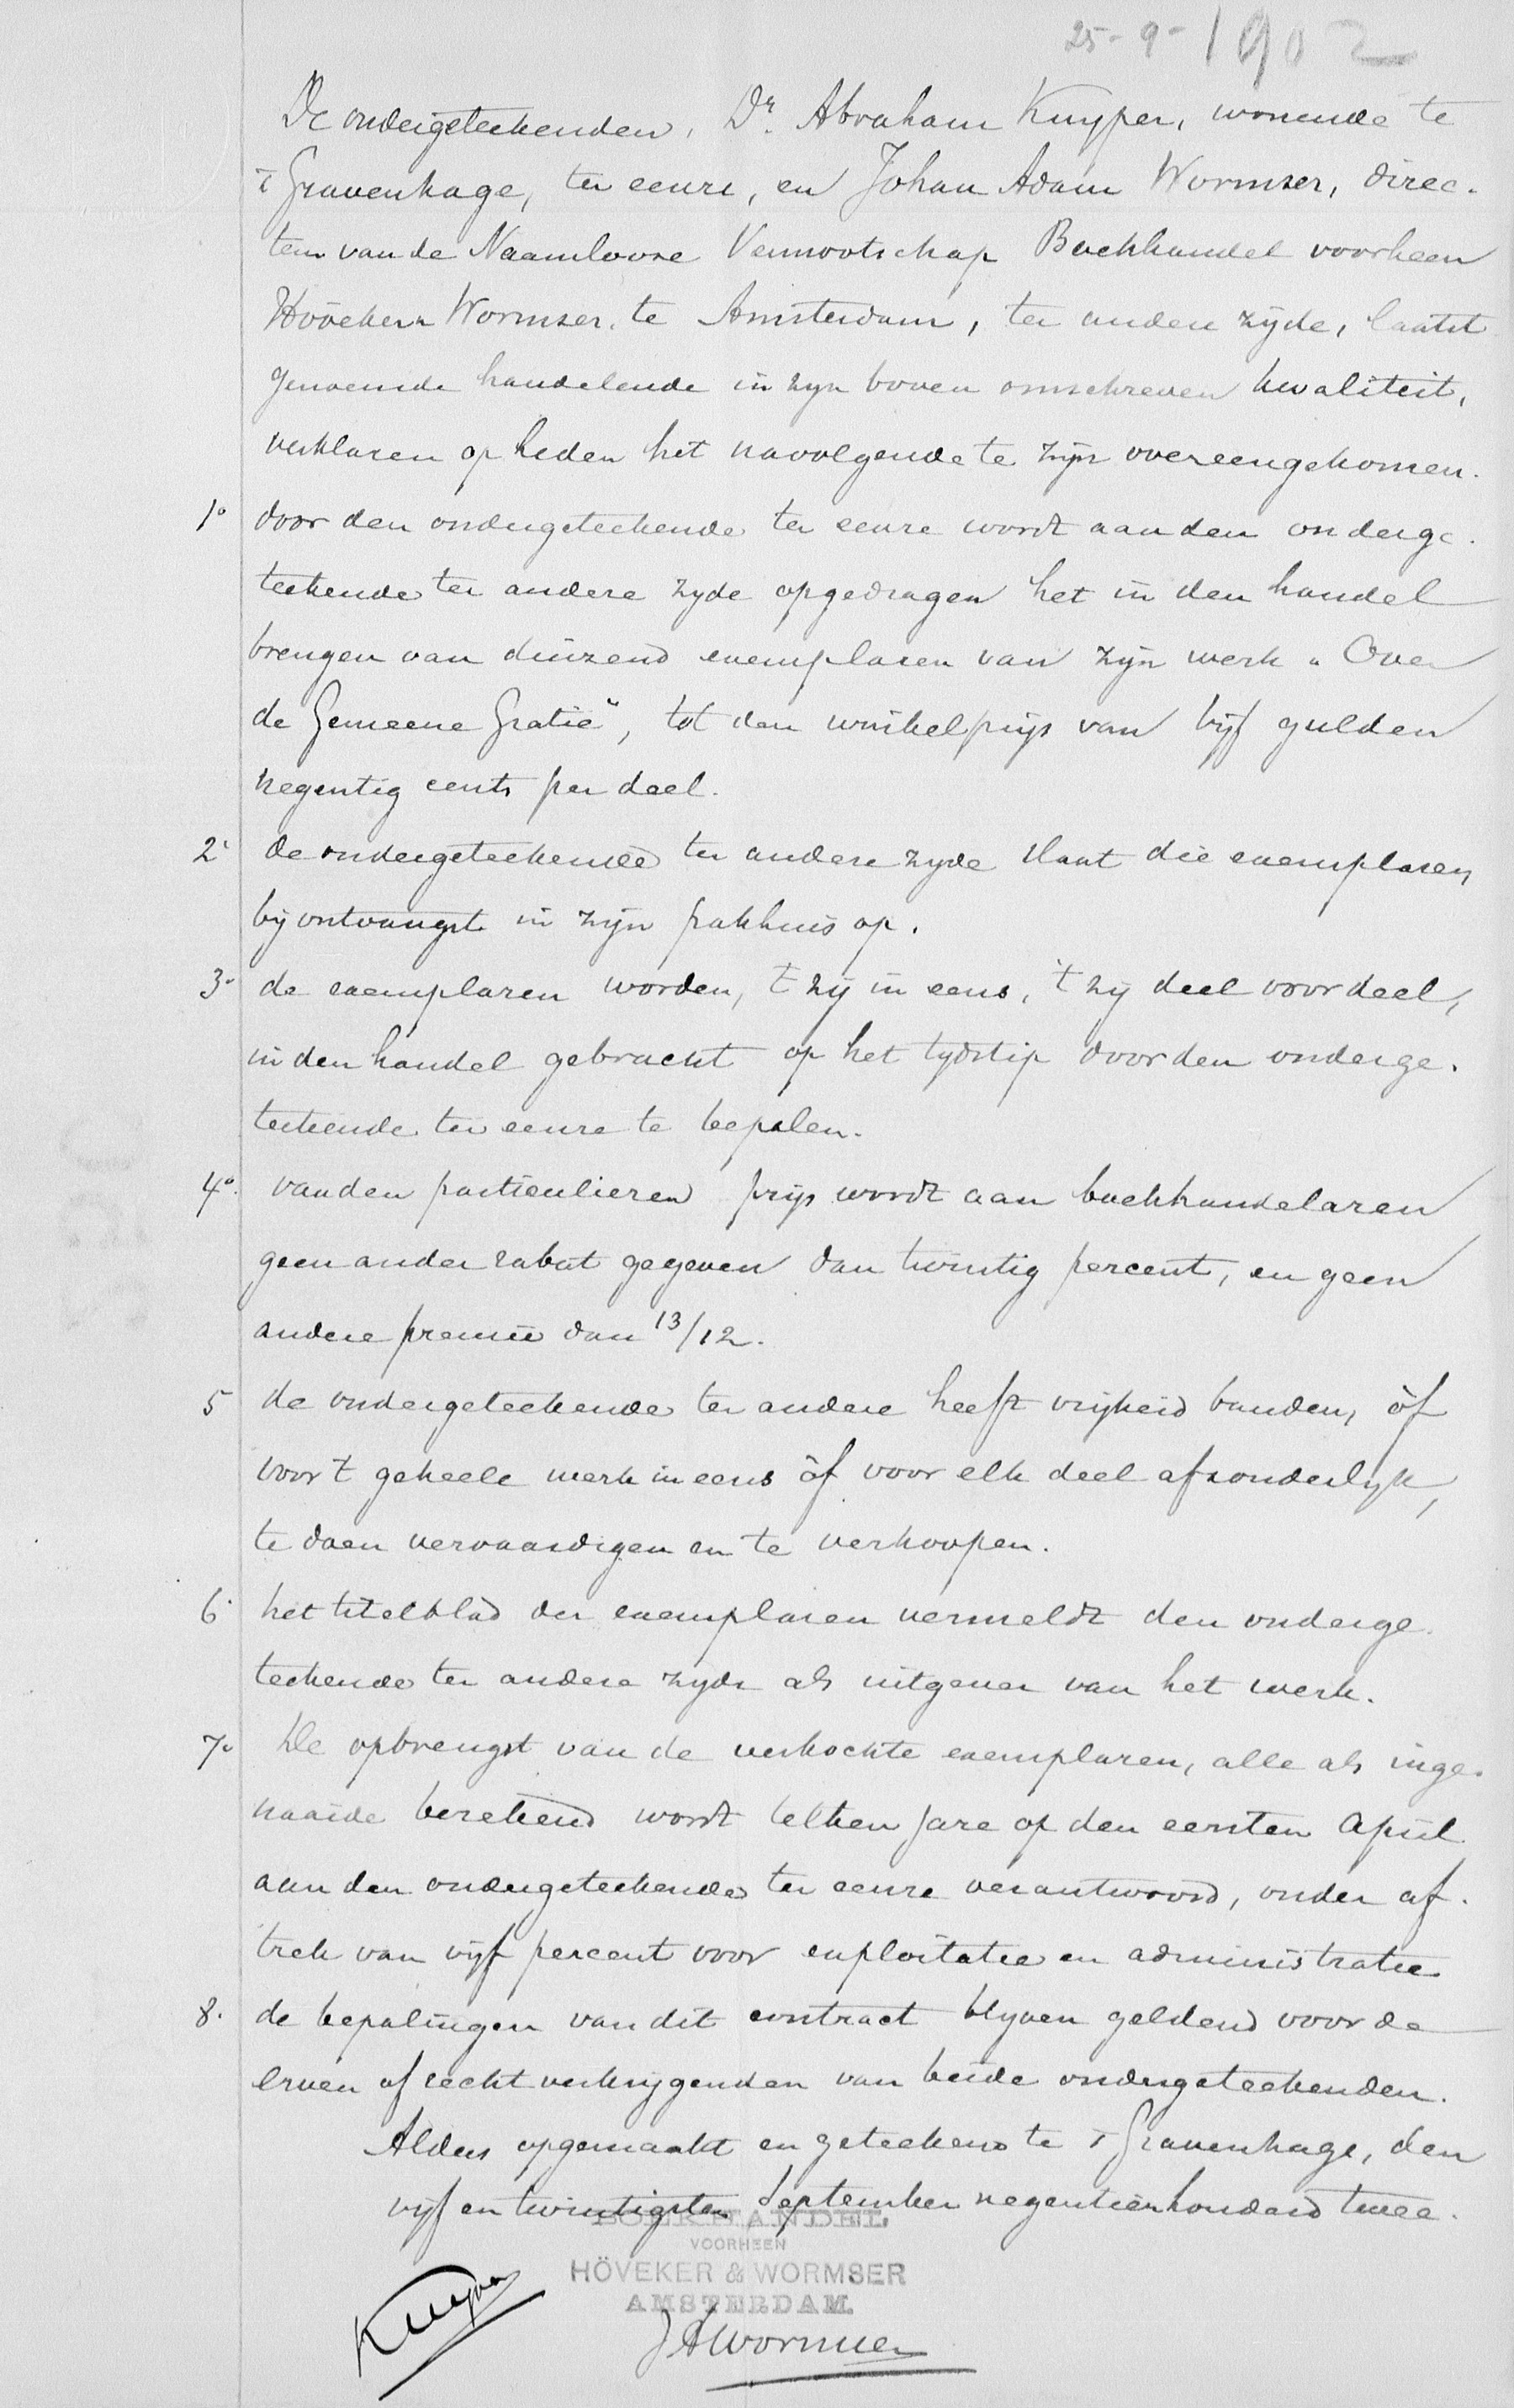 25-9-1902
De ondergeteekenden, Dr. Abraham Kuyper, wonende te
's Gravenhage, ter eenre, en Johan Adam Wormser, direc-
teur van de Naamlooze Vennootschap Boekhandel voorheen
Höveker & Wormser, te Amsterdam, ter andere zijde, laatst
genoemde handelende in zyn boven omschreven kwaliteit,
verklaren op heden het navolgende te zijn overeengekomen.
1o door den ondergeteekende ter eenre wordt aan den onderge-
teekende ter andere zyde opgedragen het in den handel
brengen van duizend exemplaren van zijn werk „Over
de Gemeene Gratie", tot den winkelprijs van vijf gulden
negentig cents per deel.
2o de ondergeteekende ter andere zyde slaat die exemplaren
bij ontvangst in zijn pakhuis op.
3o de exemplaren worden, 't zij in eens, 't zij deel voor deel,
in den handel gebracht op het tydstip door den onderge-
teekende ter eenre te bepalen.
4o. van den particulieren prijs wordt aan boekhandelaren
geen ander rabat gegeven dan twintig percent, en geen
andere premie dan 13/12.
5 de ondergeteekende ter andere heeft vrijheid banden, òf
voor 't geheele werk in eens òf voor elk deel afzonderlyk,
te doen vervaardigen en te verkoopen.
6o het titelblad der exemplaren vermeldt den onderge-
teekende ter andere zyde als uitgever van het werk.
7o De opbrengst van de verkochte exemplaren, alle als inge-
naaide berekend wordt telken jare op den eersten April
aan den ondergeteekende ter eenre verantwoord, onder af-
trek van vijf percent voor exploitatie en administratie
8. de bepalingen van dit contract blyven geldend voor de
erven of rechtverkrijgenden van beide ondergeteekenden.
Aldus opgemaakt en geteekend te 's Gravenhage, den
vijf en twintigsten September negentienhonderd twee.
BOEKHANDEL
VOORHEEN
HÖVEKER & WORMSER
AMSTERDAM.
Kuyper
JAWormser